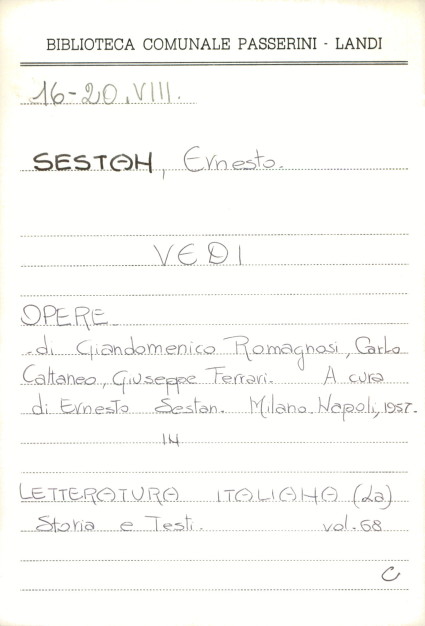 BIBLIOTECA COMUNALE PASSERINI - LANDI
16-20.VIII.
SESTAN, Ernesto.
VEDI
OPERE
di Giandomenico Romagnosi, Carlo
Cattaneo, Giuseppe Ferrari. A cura
di Ernesto Sestan. Milano. Napoli, 1957.
IN
LETTERATURA ITALIANA (La)
Storia e Testi. vol. 68
C